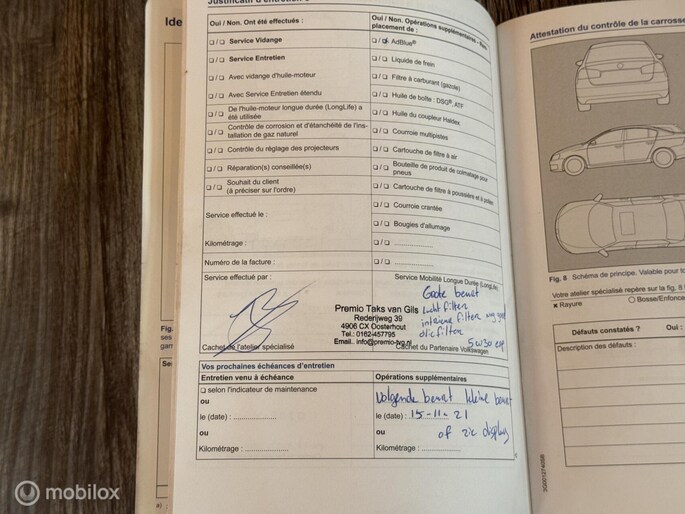 Ide
Justificatif d'entretien
Oui / Non. Ont été effectués :
❏ / ❏ Service Vidange
❏ / ❏ Service Entretien
❏ / ❏ Avec vidange d'huile-moteur
❏ / ❏ Avec Service Entretien étendu
❏ / ❏ De l'huile-moteur longue durée (LongLife) a
été utilisée
❏ / ❏ Contrôle de corrosion et d'étanchéité de l'ins-
tallation de gaz naturel
❏ / ❏ Contrôle du réglage des projecteurs
❏ / ❏ Réparation(s) conseillée(s)
❏ / ❏ Souhait du client
(à préciser sur l'ordre)
Service effectué le :
Kilométrage :
Numéro de la facture :
Service effectué par :
Cachet de l'atelier spécialisé
Oui / Non. Opérations supplémentaires -
placement de :
❏ / ❏ AdBlue®
❏ / ❏ Liquide de frein
❏ / ❏ Filtre à carburant (gazole)
❏ / ❏ Huile de boîte : DSG®, ATF
❏ / ❏ Huile du coupleur Haldex
❏ / ❏ Courroie multipistes
❏ / ❏ Cartouche de filtre à air
❏ / ❏ Bouteille de produit de colmatage pour
pneus
❏ / ❏ Cartouche de filtre à poussière et à pollen
❏ / ❏ Courroie crantée
❏ / ❏ Bougies d'allumage
❏ / ❏ ....................
❏ / ❏ ....................
Service Mobilité Longue Durée (LongLife)
Grote beurt
lucht filter
interieur filter
olie filter
5w30
Premio Taks van Gils
Rederijweg 39
4906 CX Oosterhout
Tel.: 0162-457795
Email.. info@premio-tvg.nl
Cachet du Partenaire Volkswagen
Vos prochaines échéances d'entretien
Entretien venu à échéance
❏ selon l'indicateur de maintenance
ou
le (date) : ................
ou
Kilométrage : ................
Opérations supplémentaires
Volgende beurt kleine beurt
le (date) : 15-11-21
ou of zie display
Kilométrage : ................
Attestation du contrôle de la carrosse
Fig. 8 Schéma de principe. Valable pour to
Votre atelier spécialisé repère sur la fig. 8
✖ Rayure ○ Bosse/Enfonce
Défauts constatés ? Oui :
Description des défauts :
3G0012740SB
Fig.
ses
gam
Ser
a)
mobilox